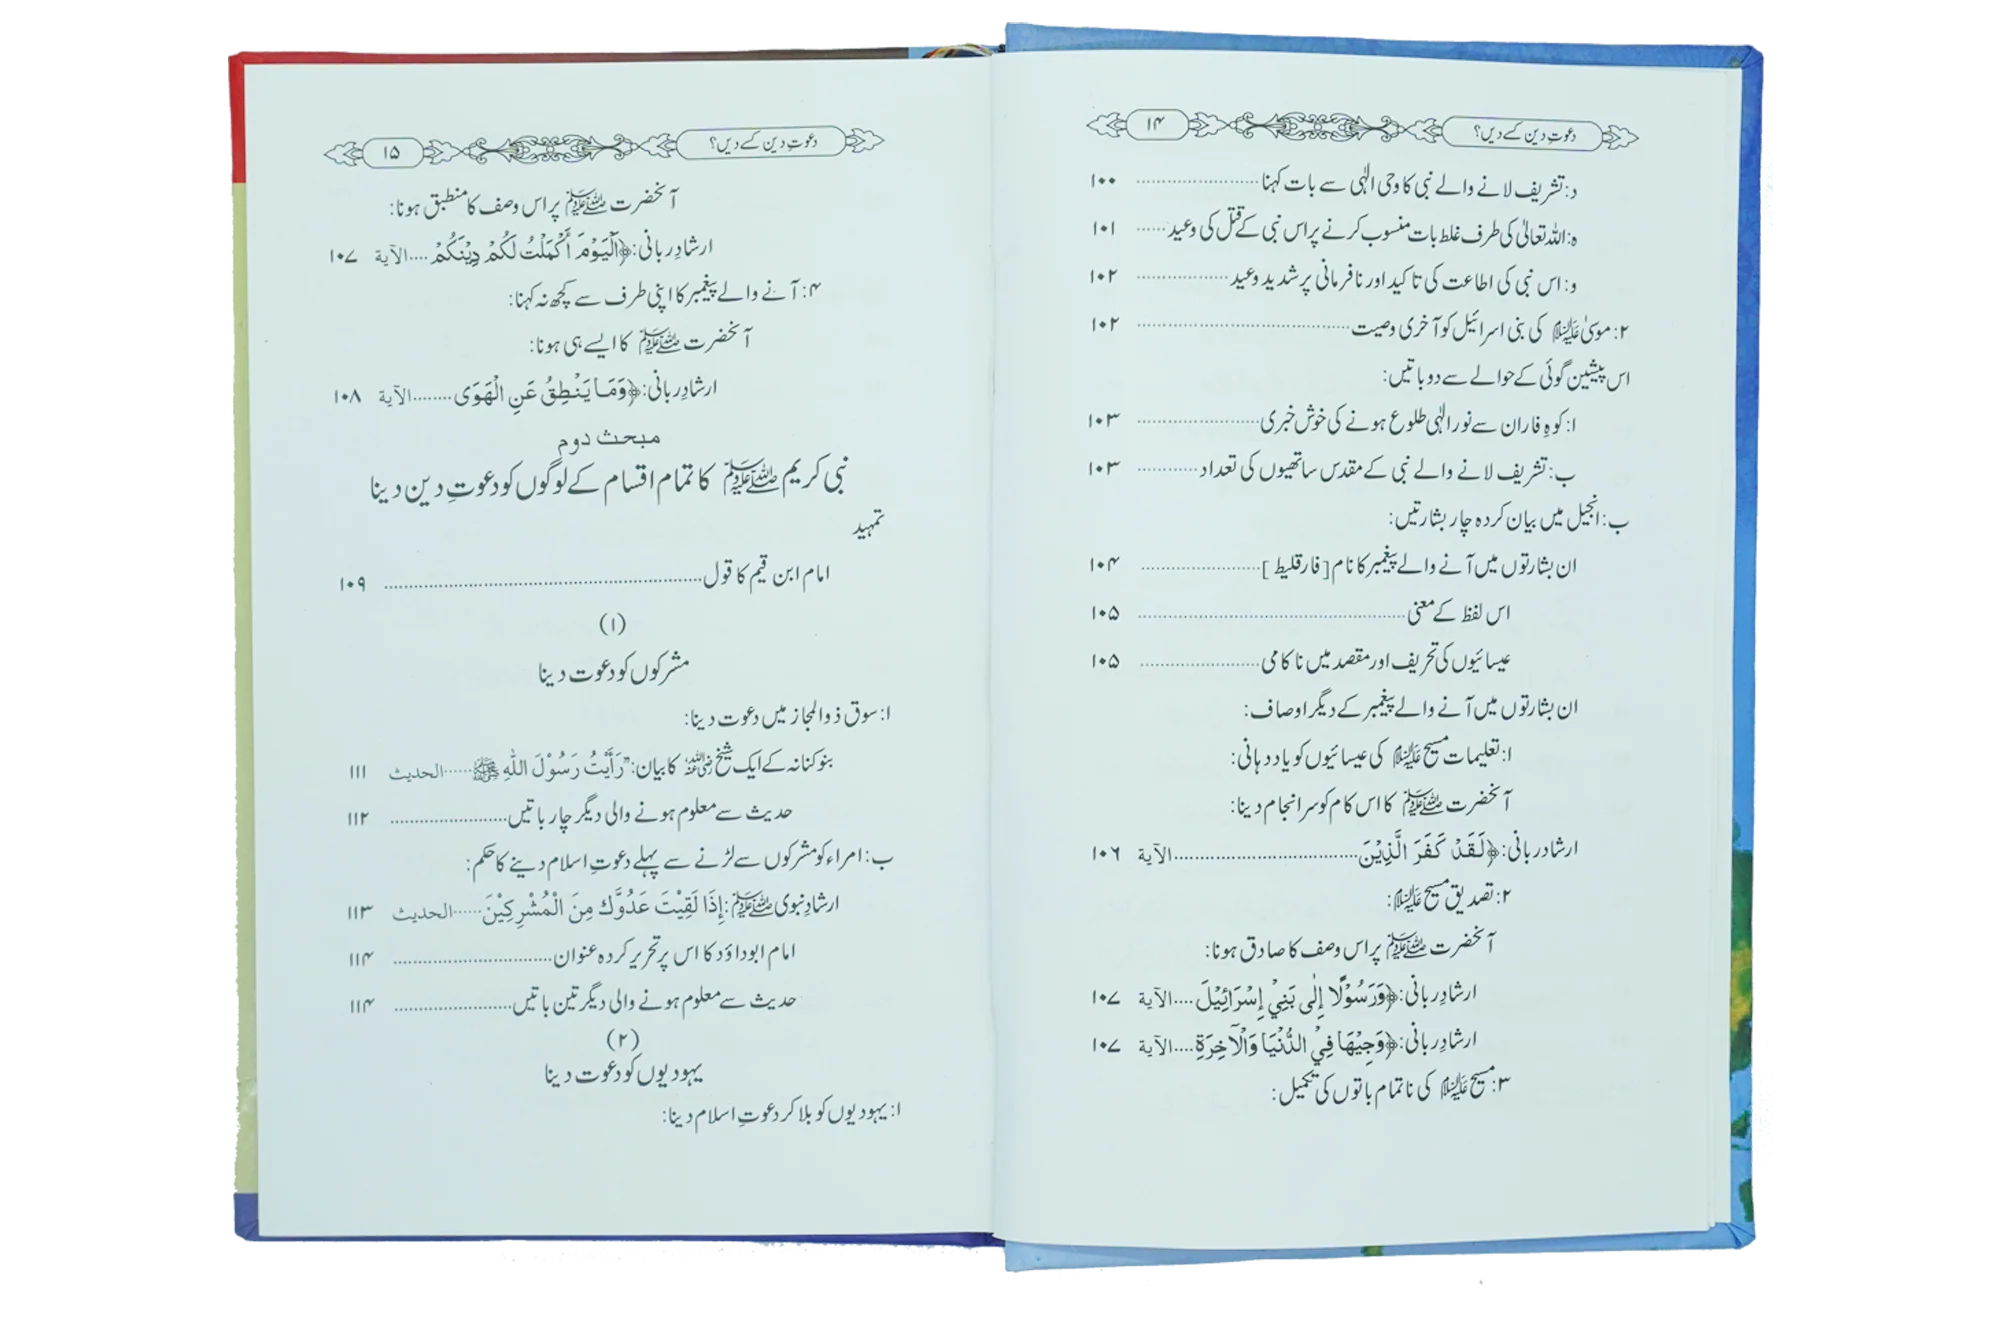 دعوتِ دین کسے دیں؟ ۱۴
د: تشریف لانے والے نبی کا وحی الٰہی سے بات کہنا ........ ۱۰۰
ہ: اللہ تعالیٰ کی طرف غلط بات منسوب کرنے پر اس نبی کے قتل کی وعید ...... ۱۰۱
و: اس نبی کی اطاعت کی تاکید اور نافرمانی پر شدید وعید ........ ۱۰۲
۲: موسیٰ علیہ السلام کی بنی اسرائیل کو آخری وصیت ........ ۱۰۲
اس پیشین گوئی کے حوالے سے دو باتیں:
ا: کوہِ فاران سے نور الٰہی طلوع ہونے کی خوش خبری ........ ۱۰۳
ب: تشریف لانے والے نبی کے مقدس ساتھیوں کی تعداد ........ ۱۰۳
ب: انجیل میں بیان کردہ چار بشارتیں:
ان بشارتوں میں آنے والے پیغمبر کا نام [فارقلیط] ........ ۱۰۴
اس لفظ کے معنی ........ ۱۰۵
عیسائیوں کی تحریف اور مقصد میں ناکامی ........ ۱۰۵
ان بشارتوں میں آنے والے پیغمبر کے دیگر اوصاف:
۱: تعلیمات مسیح علیہ السلام کی عیسائیوں کو یاد دہانی:
آنحضرت صلی اللہ علیہ وسلم کا اس کام کو سرانجام دینا:
ارشادِ ربانی: ﴿لَقَدْ كَفَرَ الَّذِيْنَ ........ الآیة ۱۰۶
۲: تصدیق مسیح علیہ السلام:
آنحضرت صلی اللہ علیہ وسلم پر اس وصف کا صادق ہونا:
ارشادِ ربانی: ﴿وَرَسُوْلًا إِلٰى بَنِيْ إِسْرَائِيْلَ .... الآیة ۱۰۷
ارشادِ ربانی: ﴿وَجِيْهًا فِيْ الدُّنْيَا وَالْآخِرَةِ .... الآیة ۱۰۷
۳: مسیح علیہ السلام کی ناتمام باتوں کی تکمیل:
دعوتِ دین کسے دیں؟ ۱۵
آنحضرت صلی اللہ علیہ وسلم پر اس وصف کا منطبق ہونا:
ارشادِ ربانی: ﴿اَلْيَوْمَ أَكْمَلْتُ لَكُمْ دِيْنَكُمْ .... الآیة ۱۰۷
۴: آنے والے پیغمبر کا اپنی طرف سے کچھ نہ کہنا:
آنحضرت صلی اللہ علیہ وسلم کا ایسے ہی ہونا:
ارشادِ ربانی: ﴿وَمَا يَنْطِقُ عَنِ الْهَوَى ........ الآیة ۱۰۸
مبحث دوم
نبی کریم صلی اللہ علیہ وسلم کا تمام اقسام کے لوگوں کو دعوتِ دین دینا
تمہید
امام ابن قیم کا قول ........ ۱۰۹
(۱)
مشرکوں کو دعوت دینا
ا: سوق ذوالمجاز میں دعوت دینا:
بنو کنانہ کے ایک شیخ رضی اللہ عنہ کا بیان: "رَأَيْتُ رَسُوْلَ اللّٰهِ ﷺ ...... الحدیث ۱۱۱
حدیث سے معلوم ہونے والی دیگر چار باتیں ........ ۱۱۲
ب: امراء کو مشرکوں سے لڑنے سے پہلے دعوتِ اسلام دینے کا حکم:
ارشادِ نبوی صلی اللہ علیہ وسلم: إِذَا لَقِيْتَ عَدُوَّكَ مِنَ الْمُشْرِكِيْنَ ...... الحدیث ۱۱۳
امام ابوداؤد کا اس پر تحریر کردہ عنوان ........ ۱۱۴
حدیث سے معلوم ہونے والی دیگر تین باتیں ........ ۱۱۴
(۲)
یہودیوں کو دعوت دینا
ا: یہودیوں کو بلا کر دعوتِ اسلام دینا: